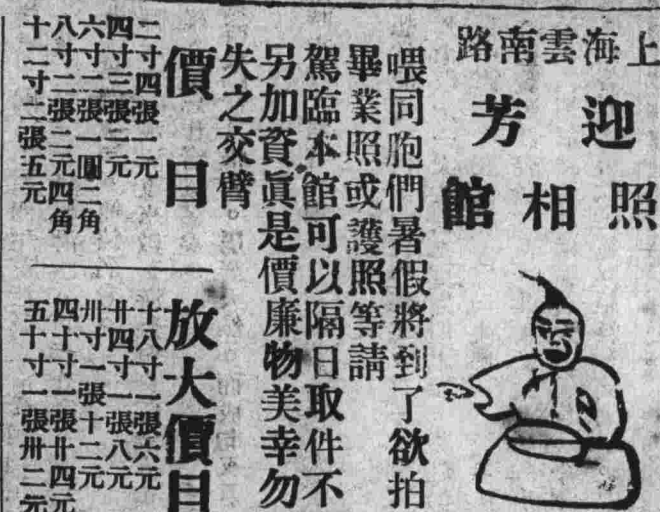 上海雲南路
迎芳
照相館
喂同胞們暑假將到了欲拍
畢業照或護照等請
駕臨本館可以隔日取件不
另加資眞是價廉物美幸勿
失之交臂
價目
二寸四張一元
四寸三張二元
六寸二張一圓二角
八寸二張二元四角
十二寸二張五元
放大價目
十八寸一張六元
廿四寸一張八元
卅寸一張十二元
四十寸一張廿四元
五十寸一張卅二元